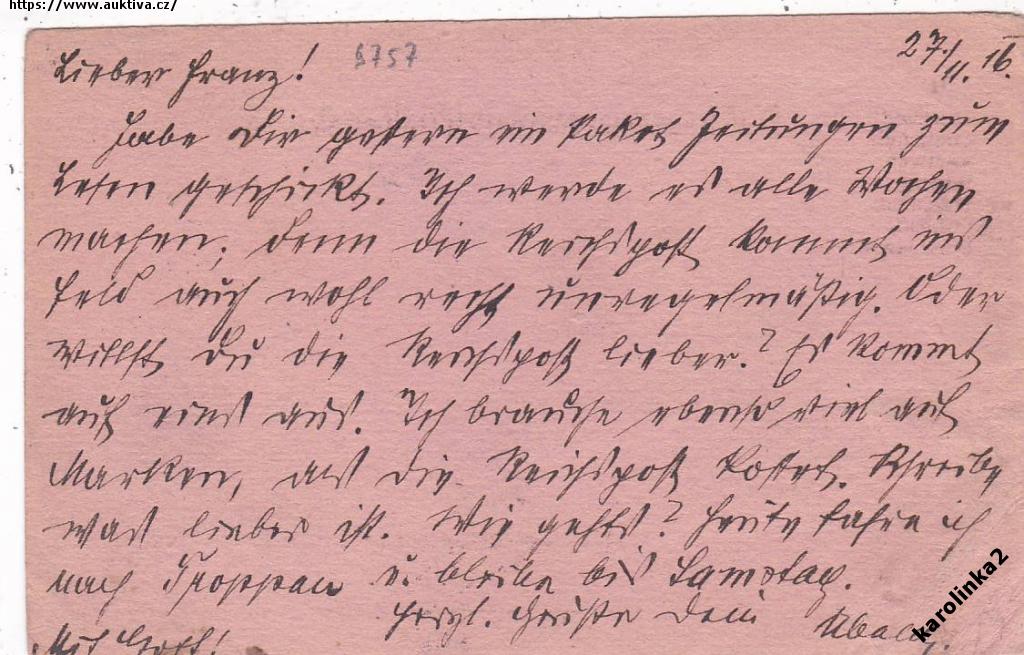 https://www.auktiva.cz/
Lieber Franz! 8757 27./11. 16.
Habe Dir gestern ein Paket Zeitungen zum
Lesen geschickt. Ich werde es alle Wochen
machen; denn die Reichspost kommt ins
Feld auch wohl recht unregelmäßig. Oder
willst Du die Reichspost lieber? Es kommt
auf eins aus. Ich brauche ebenso viel auf
Marken, als die Reichspost kostet. Schreibe
was lieber ist. Wie gehts? Heute fahre ich
nach Troppau u. bleibe bis Samstag.
Herzl. Grüße Dein
Mit Gott!
karolinka2